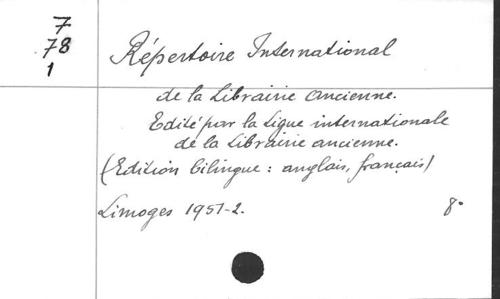 7
78
1
Répertoire International
de la Librairie Ancienne.
Edité par la Ligue internationale
de la Librairie ancienne.
(Edition bilingue : anglais, français)
Limoges 1951-2. 8°